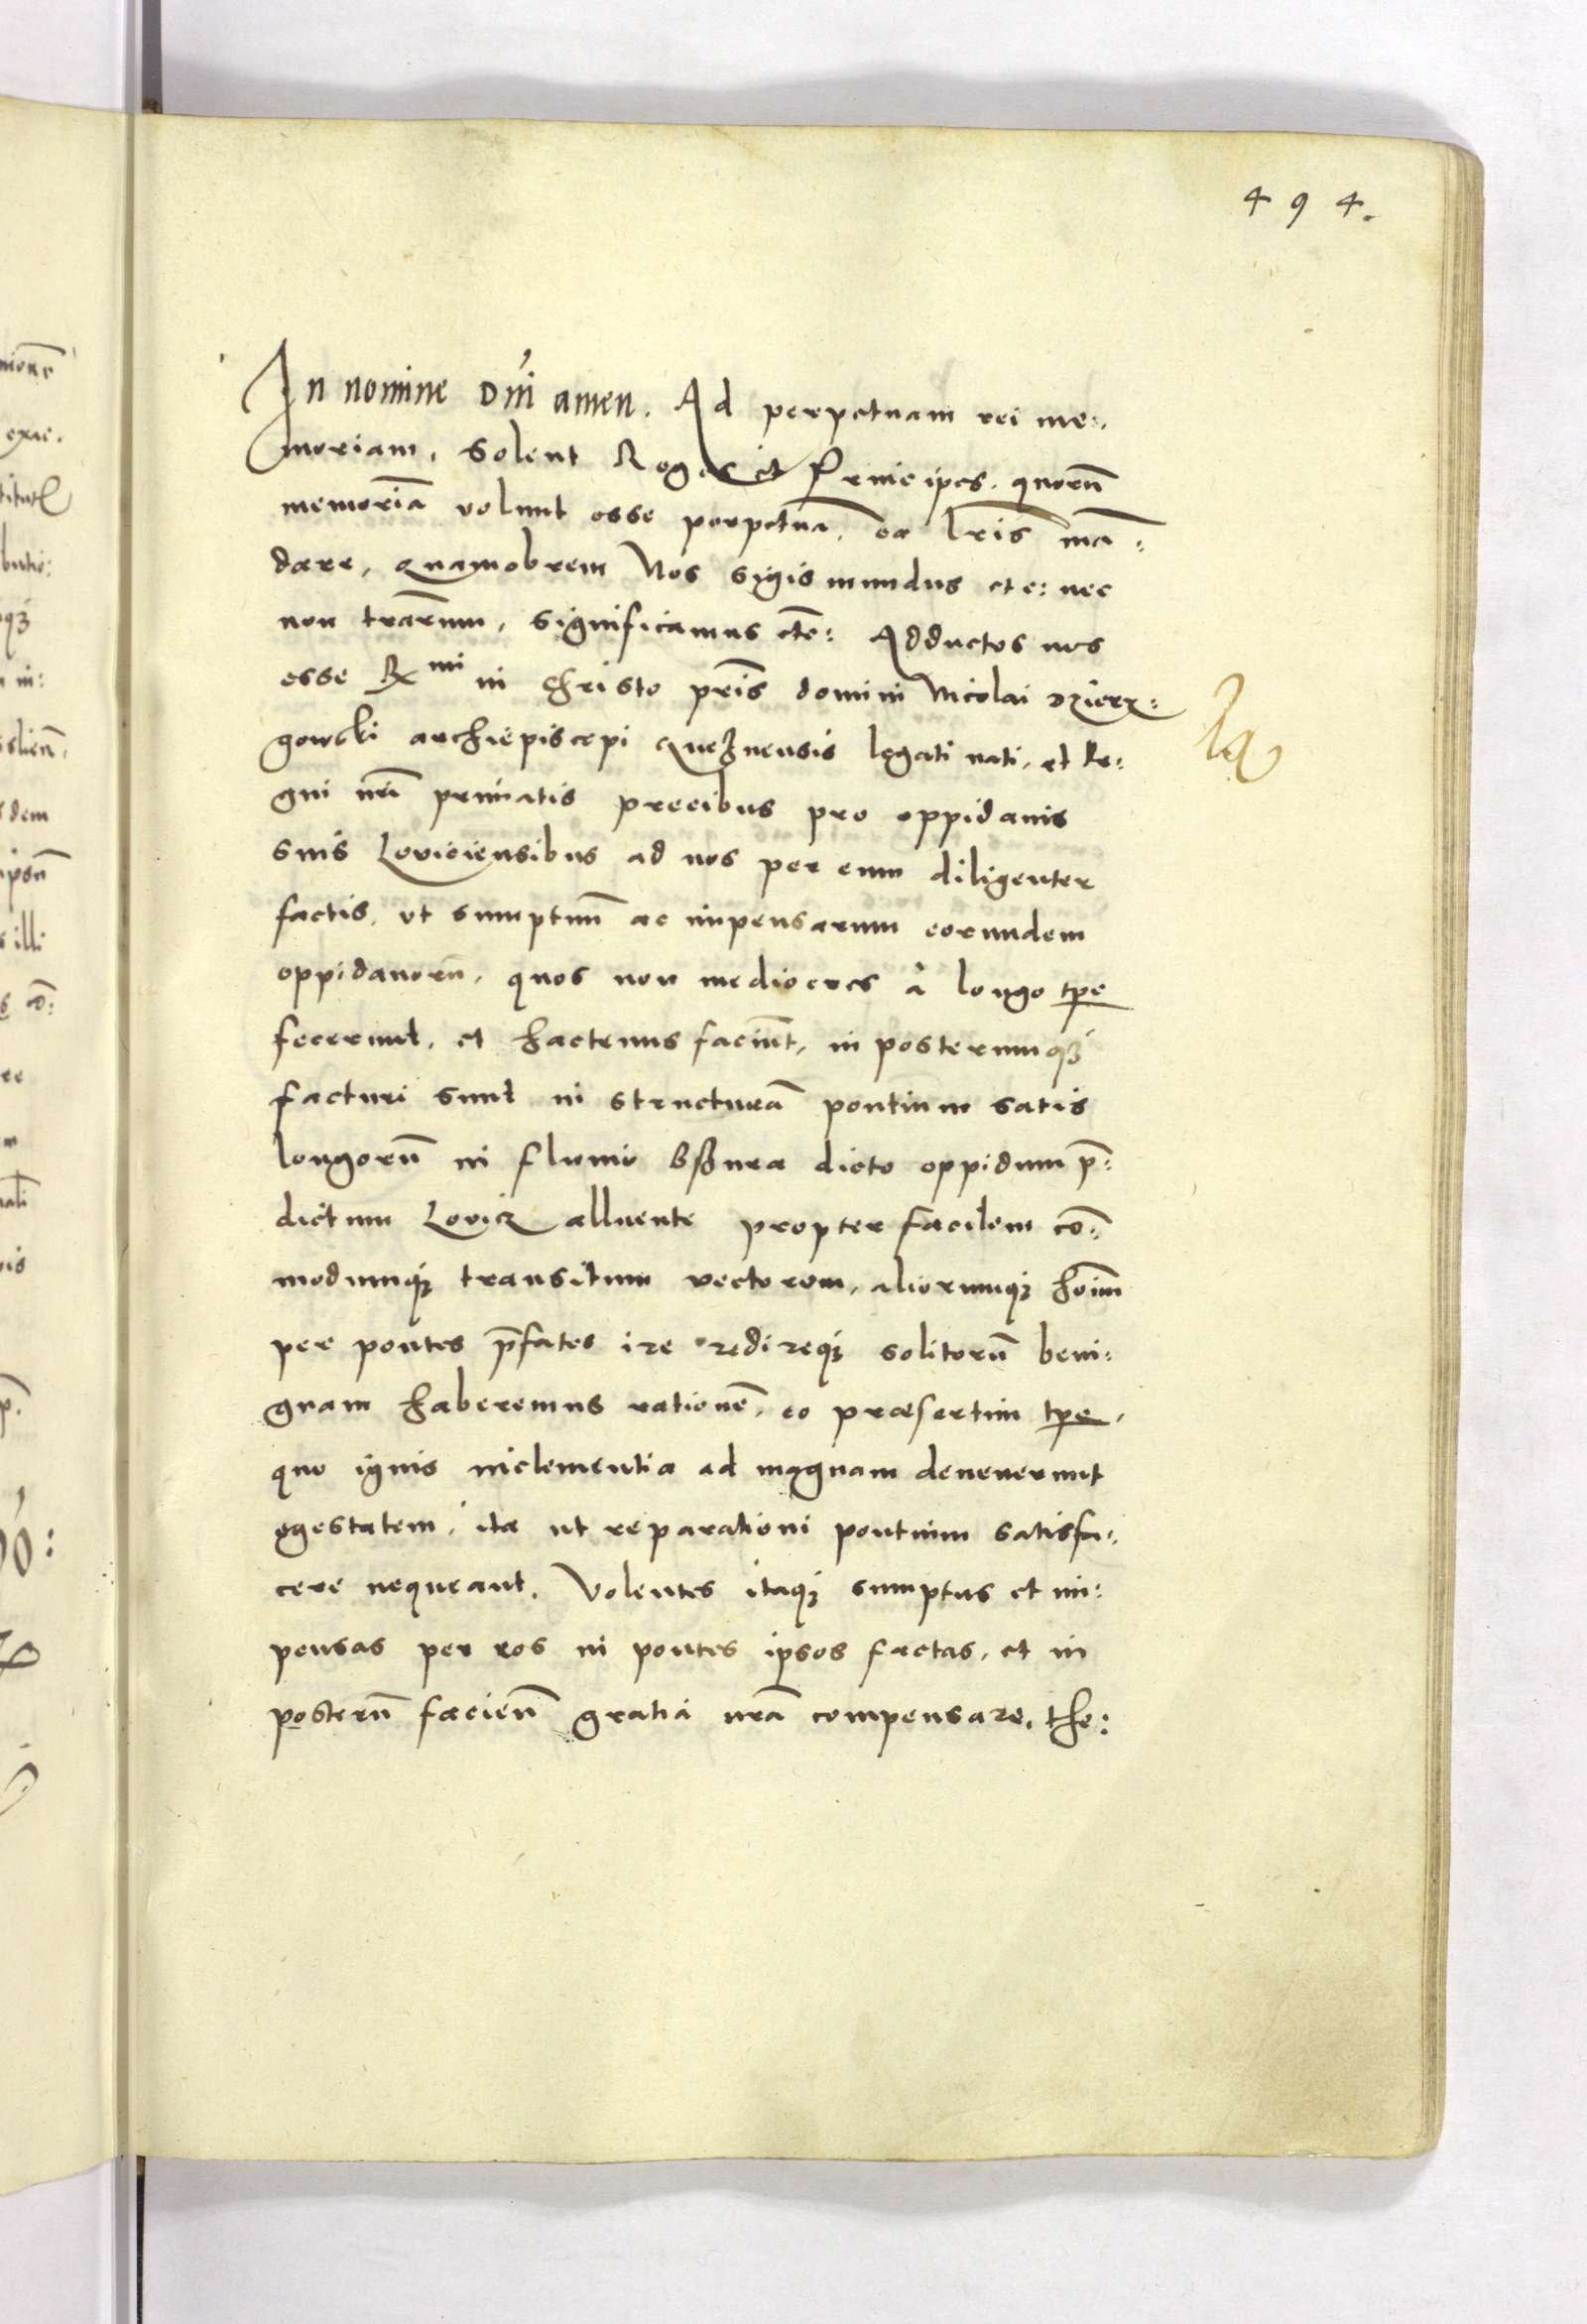 494.
In nomine Dñi amen. Ad perpetuam rei me:
moriam. Solent Reges et Principes. quorũ
memoriã volunt esse perpetuã, ea lr̃is mã:
dare, Quamobrem Nos Sigismundus etc: nec
non trarũm, significamus etc: Adductos nos
esse Rmi in Christo pr̃is domini Nicolai Dzierz:
gowski archiepiscopi Gneznensis legati nati, et Re:
gni nr̃i primatis precibus pro oppidanis
suis Loviciensibus ad nos per eum diligenter
factis, ut sumptuũ ac impensarum eorundem
oppidanorũ, quos non mediocres à longo tp̱e
fecerunt, et hactenus faciũt, in posterumq̃
facturi sunt in structurã pontium satis
longorũ in fluvio Bßura dicto oppidum p̃:
dictum Lovicz alluente propter facilem cõ:
modumq̃ transitum vectorum, aliorumq̃ hoĩm
per pontes p̃fatos ire redireq̃ solitorũ beni:
gnam haberemus rationẽ, eo præsertim tp̱e,
quo ignis inclementia ad magnam devenerunt
egestatem, ita ut reparationi pontium satisfa:
cere nequeant. Volentes itaq̃ sumptus et im:
pensas per eos in pontes ipsos factas, et in
posterũ facieñ gratia nr̃a compensare, the: